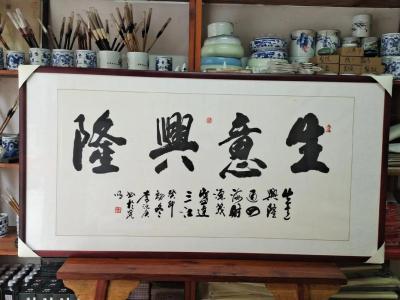 生意興隆
生意
興隆
通四
海財
源茂
盛達
三江
癸卯
初冬